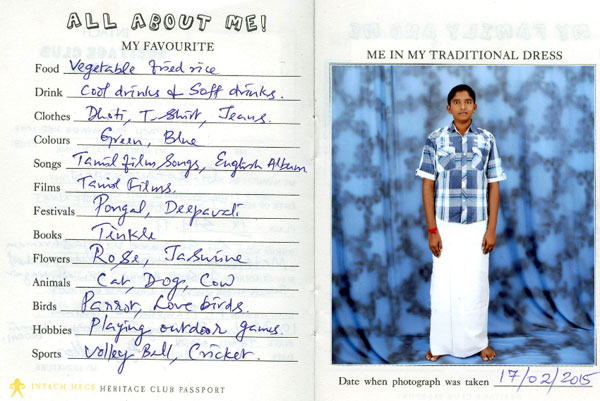 ALL ABOUT ME!
MY FAVOURITE
Food Vegetable fried rice
Drink Cool drinks & Soft drinks.
Clothes Dhoti, T.Shirt, Jeans.
Colours Green, Blue
Songs Tamil film Songs, English Album
Films Tamil Films.
Festivals Pongal, Deepavali
Books Tinkle
Flowers Rose, Jasmine
Animals Cat, Dog, Cow
Birds Parrot, Love birds.
Hobbies Playing outdoor games.
Sports Volley Ball, Cricket.
INTACH HECS HERITAGE CLUB PASSPORT
ME IN MY TRADITIONAL DRESS
Date when photograph was taken 17/02/2015